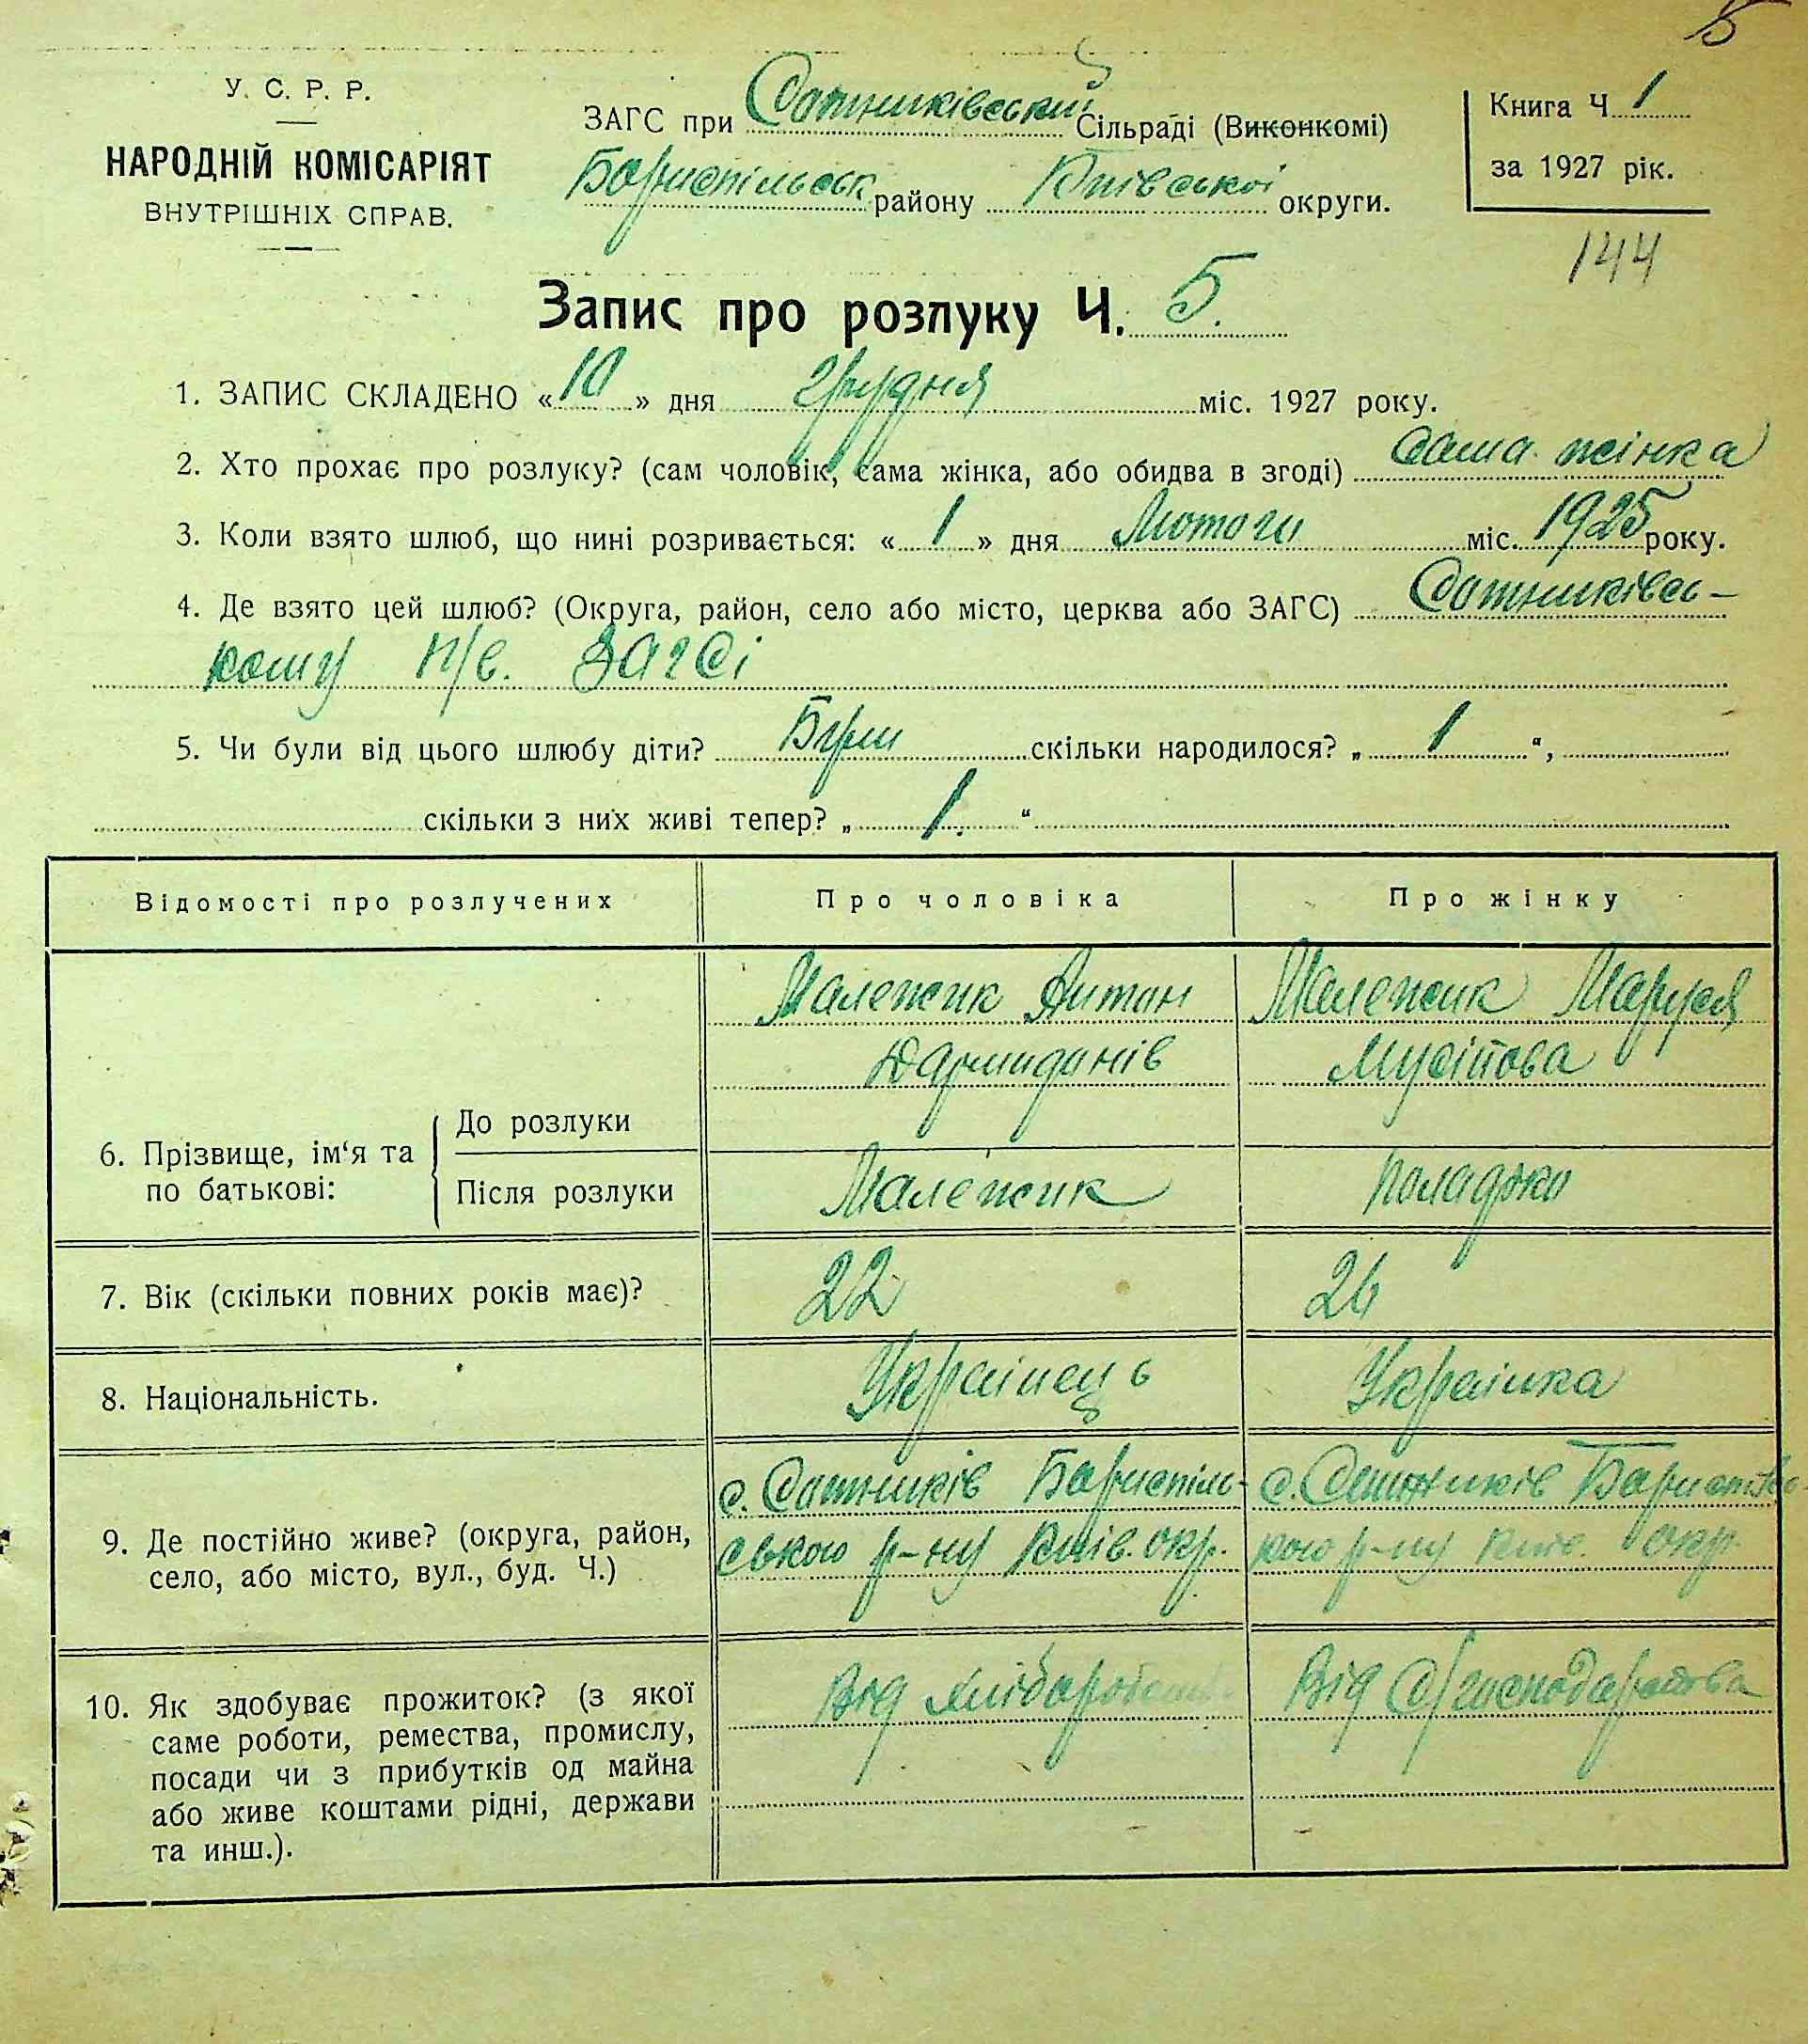 5
У. С. Р. Р.
НАРОДНІЙ КОМІСАРІЯТ
ВНУТРІШНІХ СПРАВ.
ЗАГС при Сотниківський Сільраді (Виконкомі)
Бориспільськ району Київської округи.
Книга Ч. 1
за 1927 рік.
144
Запис про розлуку Ч. 5.
1. ЗАПИС СКЛАДЕНО «10» дня грудня міс. 1927 року.
2. Хто прохає про розлуку? (сам чоловік, сама жінка, або обидва в згоді) сама жінка
3. Коли взято шлюб, що нині розривається: «1» дня Лютого міс. 1925 року.
4. Де взято цей шлюб? (Округа, район, село або місто, церква або ЗАГС) Сотниківсь-
кому п/в. ЗАГСі
5. Чи були від цього шлюбу діти? Були скільки народилося? „ 1 “,
скільки з них живі тепер? „ 1. “
Відомості про розлучених
Про чоловіка
Про жінку
6. Прізвище, ім‘я та по батькові:
До розлуки
Малежик Антон
Малежик Маруся
Мусіївова
Після розлуки
Малежик
Поладько
7. Вік (скільки повних років має)?
22
26
8. Національність.
Українець
Українка
9. Де постійно живе? (округа, район,
село, або місто, вул., буд. Ч.)
с. Сотників Бориспіль-
ського р-ну Київ. окр.
с. Сотників Бориспільсь-
кого р-ну Київ. окр.
10. Як здобуває прожиток? (з якої
саме роботи, ремества, промислу,
посади чи з прибутків од майна
або живе коштами рідні, держави
та инш.).
Від хліборобства
Від С/господарства